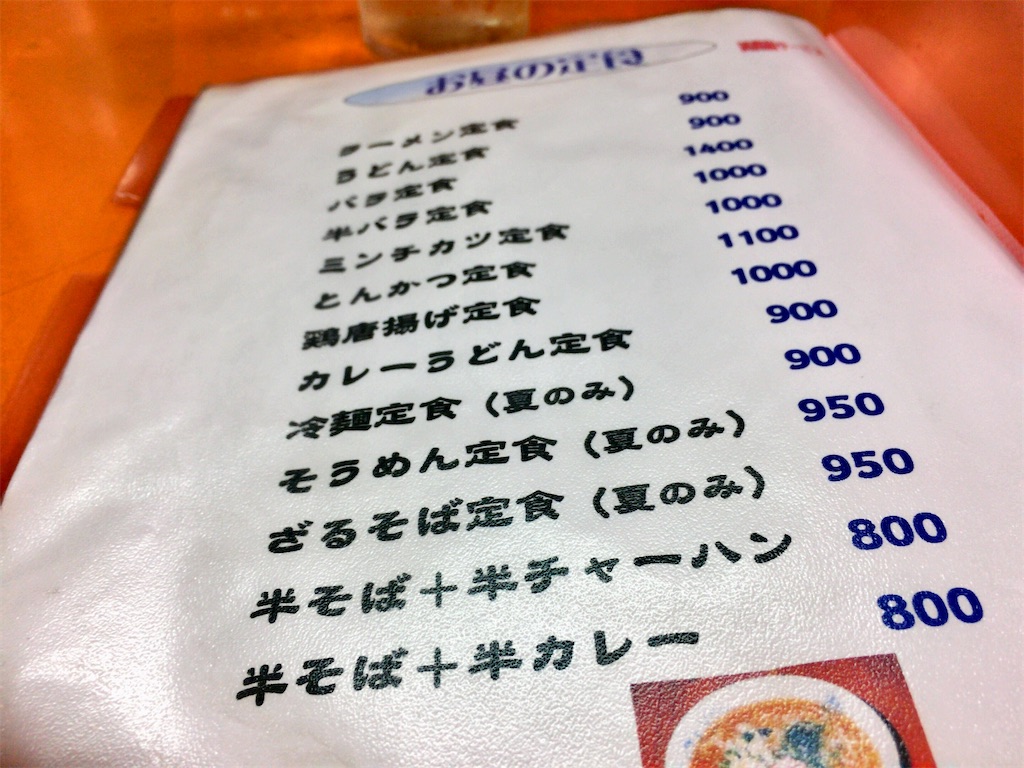 お昼の定食
ラーメン定食 900
うどん定食 900
バラ定食 1400
半バラ定食 1000
ミンチカツ定食 1000
とんかつ定食 1100
鶏唐揚げ定食 1000
カレーうどん定食 900
冷麺定食（夏のみ） 900
そうめん定食（夏のみ） 950
ざるそば定食（夏のみ） 950
半そば＋半チャーハン 800
半そば＋半カレー 800